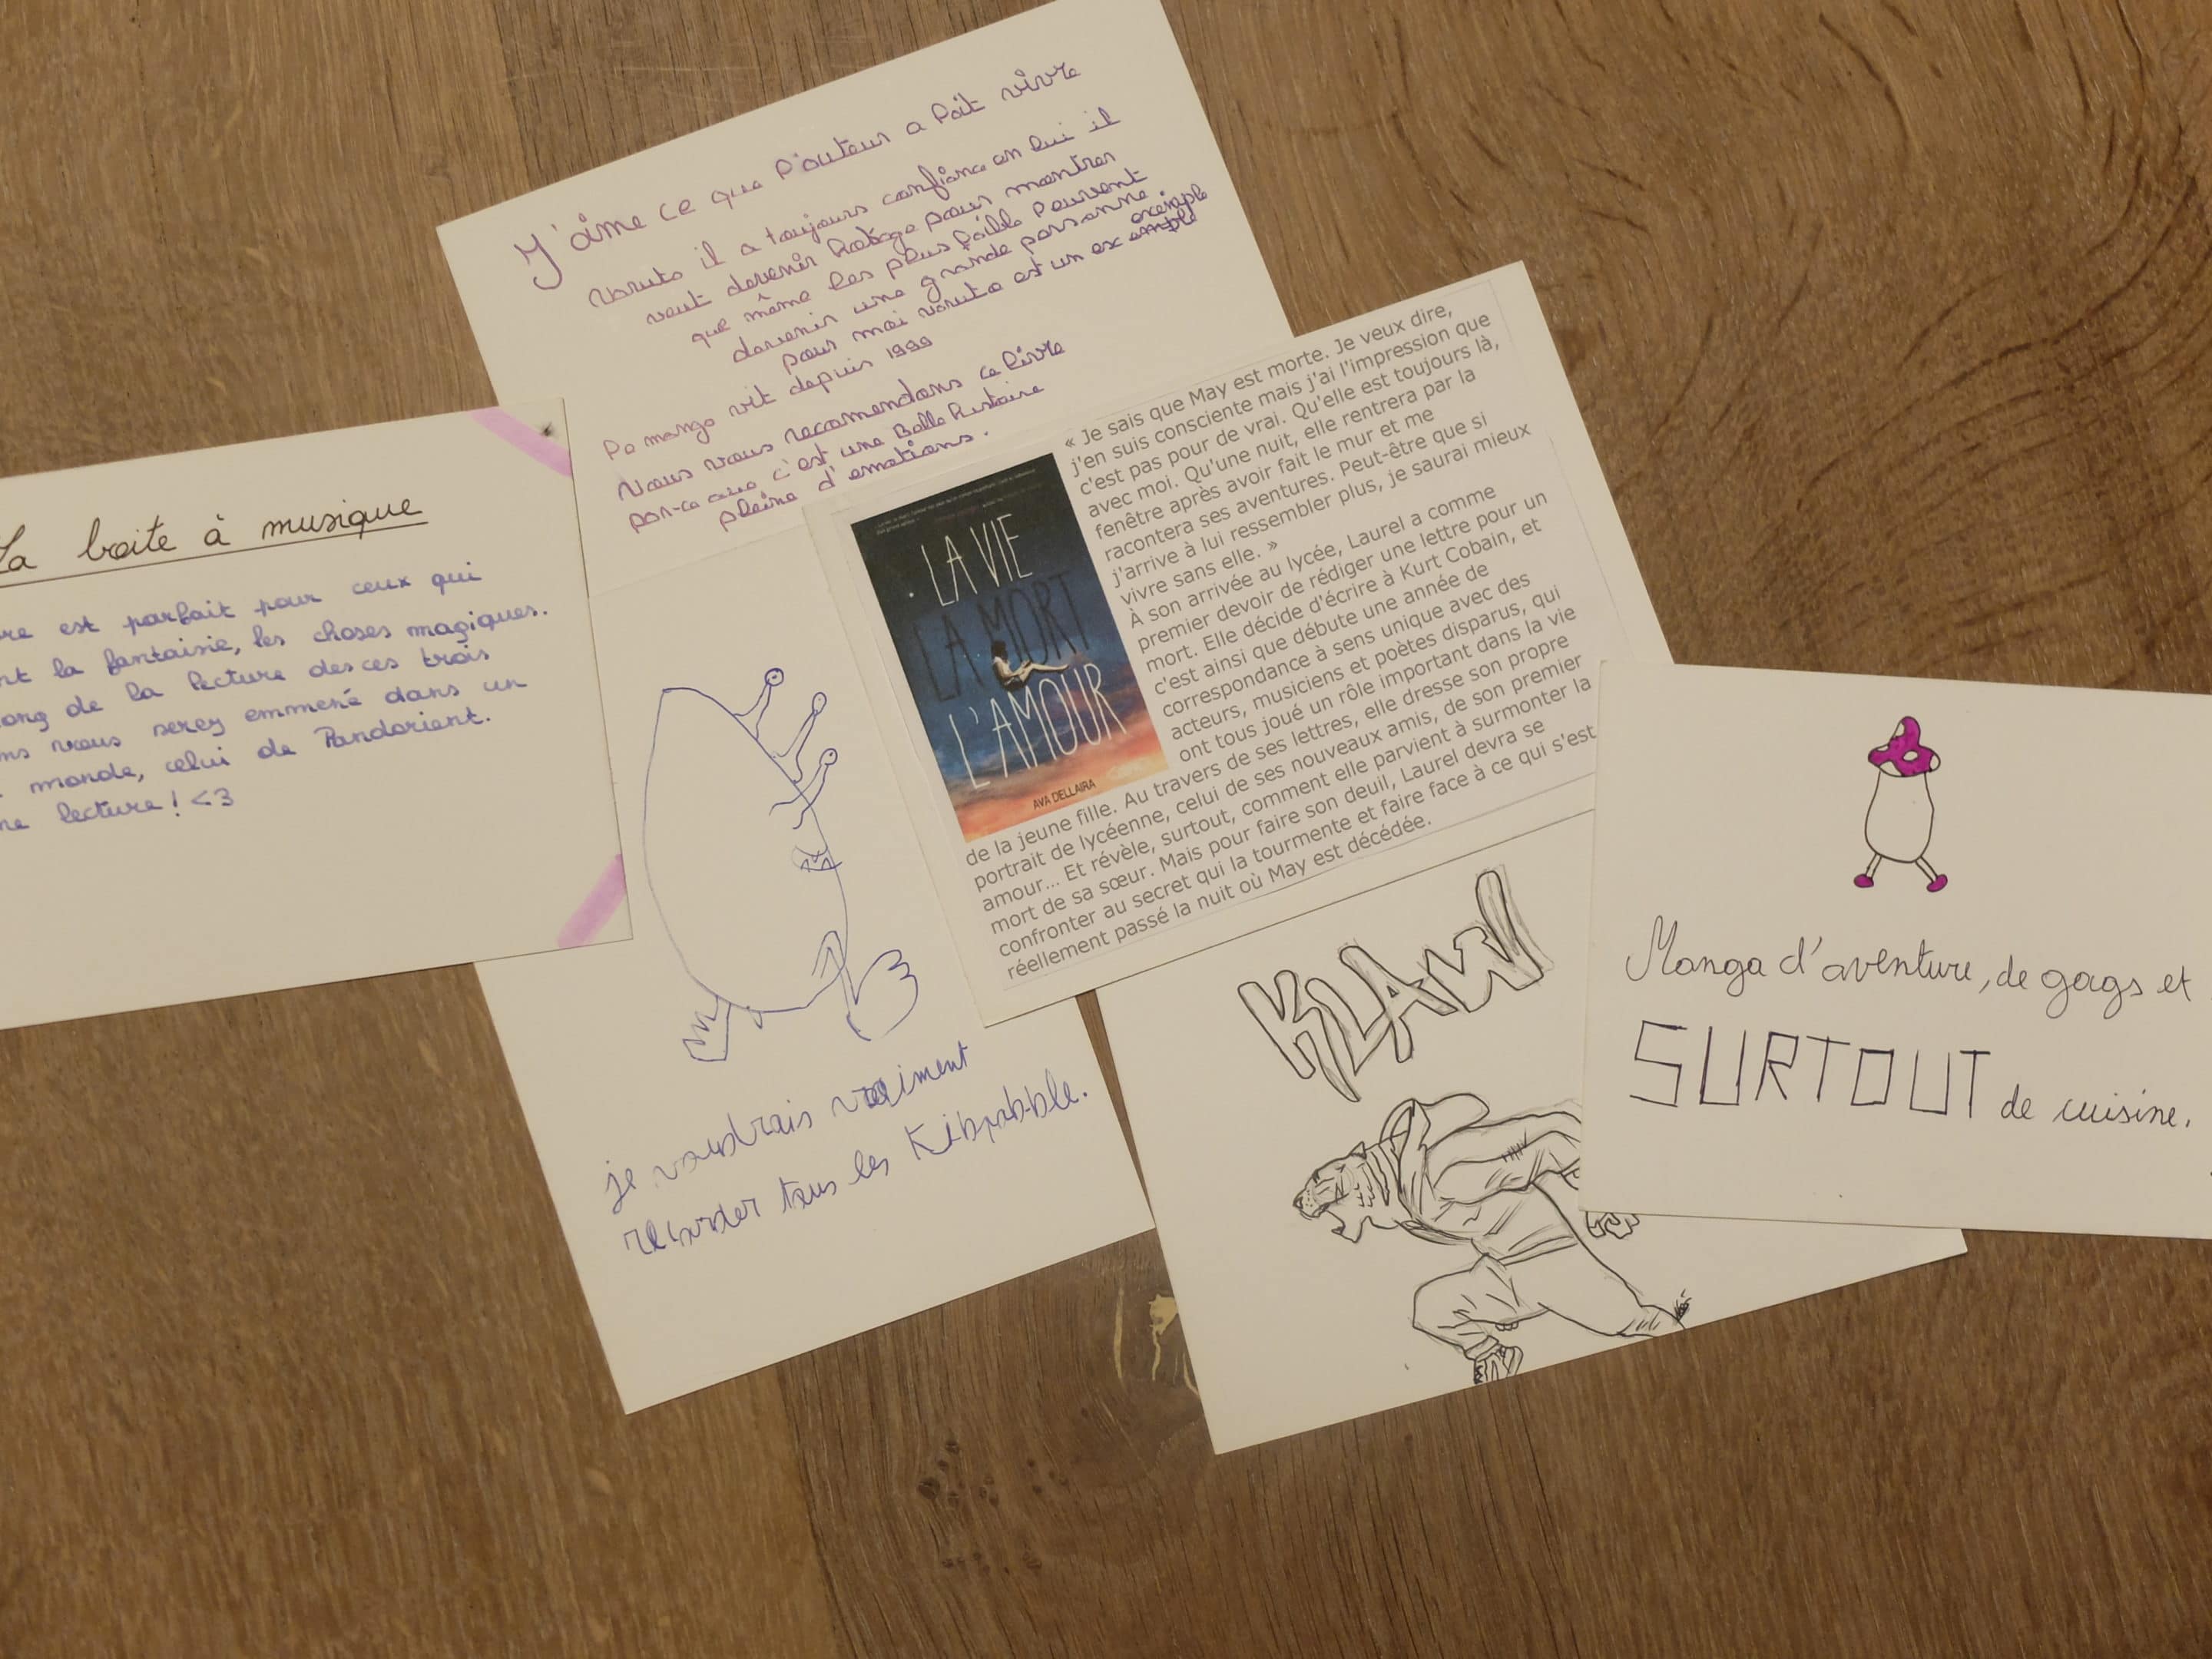 J'aime ce que l'auteur a fait vivre
Naruto il a toujours confiance en lui il
veut devenir hokage pour montrer
que même les plus faible peuvent
devenir une grande personne
pour moi naruto est un ex exemple
Le manga vit depuis 1999
Nous vous recomandons ce livre
par-ce que c'est une Belle histoire
pleine d'emotions.
La boite à musique
re est parfait pour ceux qui
nt la fantaisie, les choses magiques.
ong de la lecture des ces trois
ns vous serez emmené dans un
monde, celui de Pandorient.
ne lecture! <3
« Je sais que May est morte. Je veux dire,
j'en suis consciente mais j'ai l'impression que
c'est pas pour de vrai. Qu'elle est toujours là,
avec moi. Qu'une nuit, elle rentrera par la
fenêtre après avoir fait le mur et me
racontera ses aventures. Peut-être que si
j'arrive à lui ressembler plus, je saurai mieux
vivre sans elle. »
À son arrivée au lycée, Laurel a comme
premier devoir de rédiger une lettre pour un
mort. Elle décide d'écrire à Kurt Cobain, et
c'est ainsi que débute une année de
correspondance à sens unique avec des
acteurs, musiciens et poètes disparus, qui
ont tous joué un rôle important dans la vie
de la jeune fille. Au travers de ses lettres, elle dresse son propre
portrait de lycéenne, celui de ses nouveaux amis, de son premier
amour... Et révèle, surtout, comment elle parvient à surmonter la
mort de sa sœur. Mais pour faire son deuil, Laurel devra se
confronter au secret qui la tourmente et faire face à ce qui s'est
réellement passé la nuit où May est décédée.
LA VIE
LA MORT
L'AMOUR
AVA DELLAIRA
je voudrais vraiment
tous les
KLAW
Manga d'aventure, de gags et
SURTOUT de cuisine.